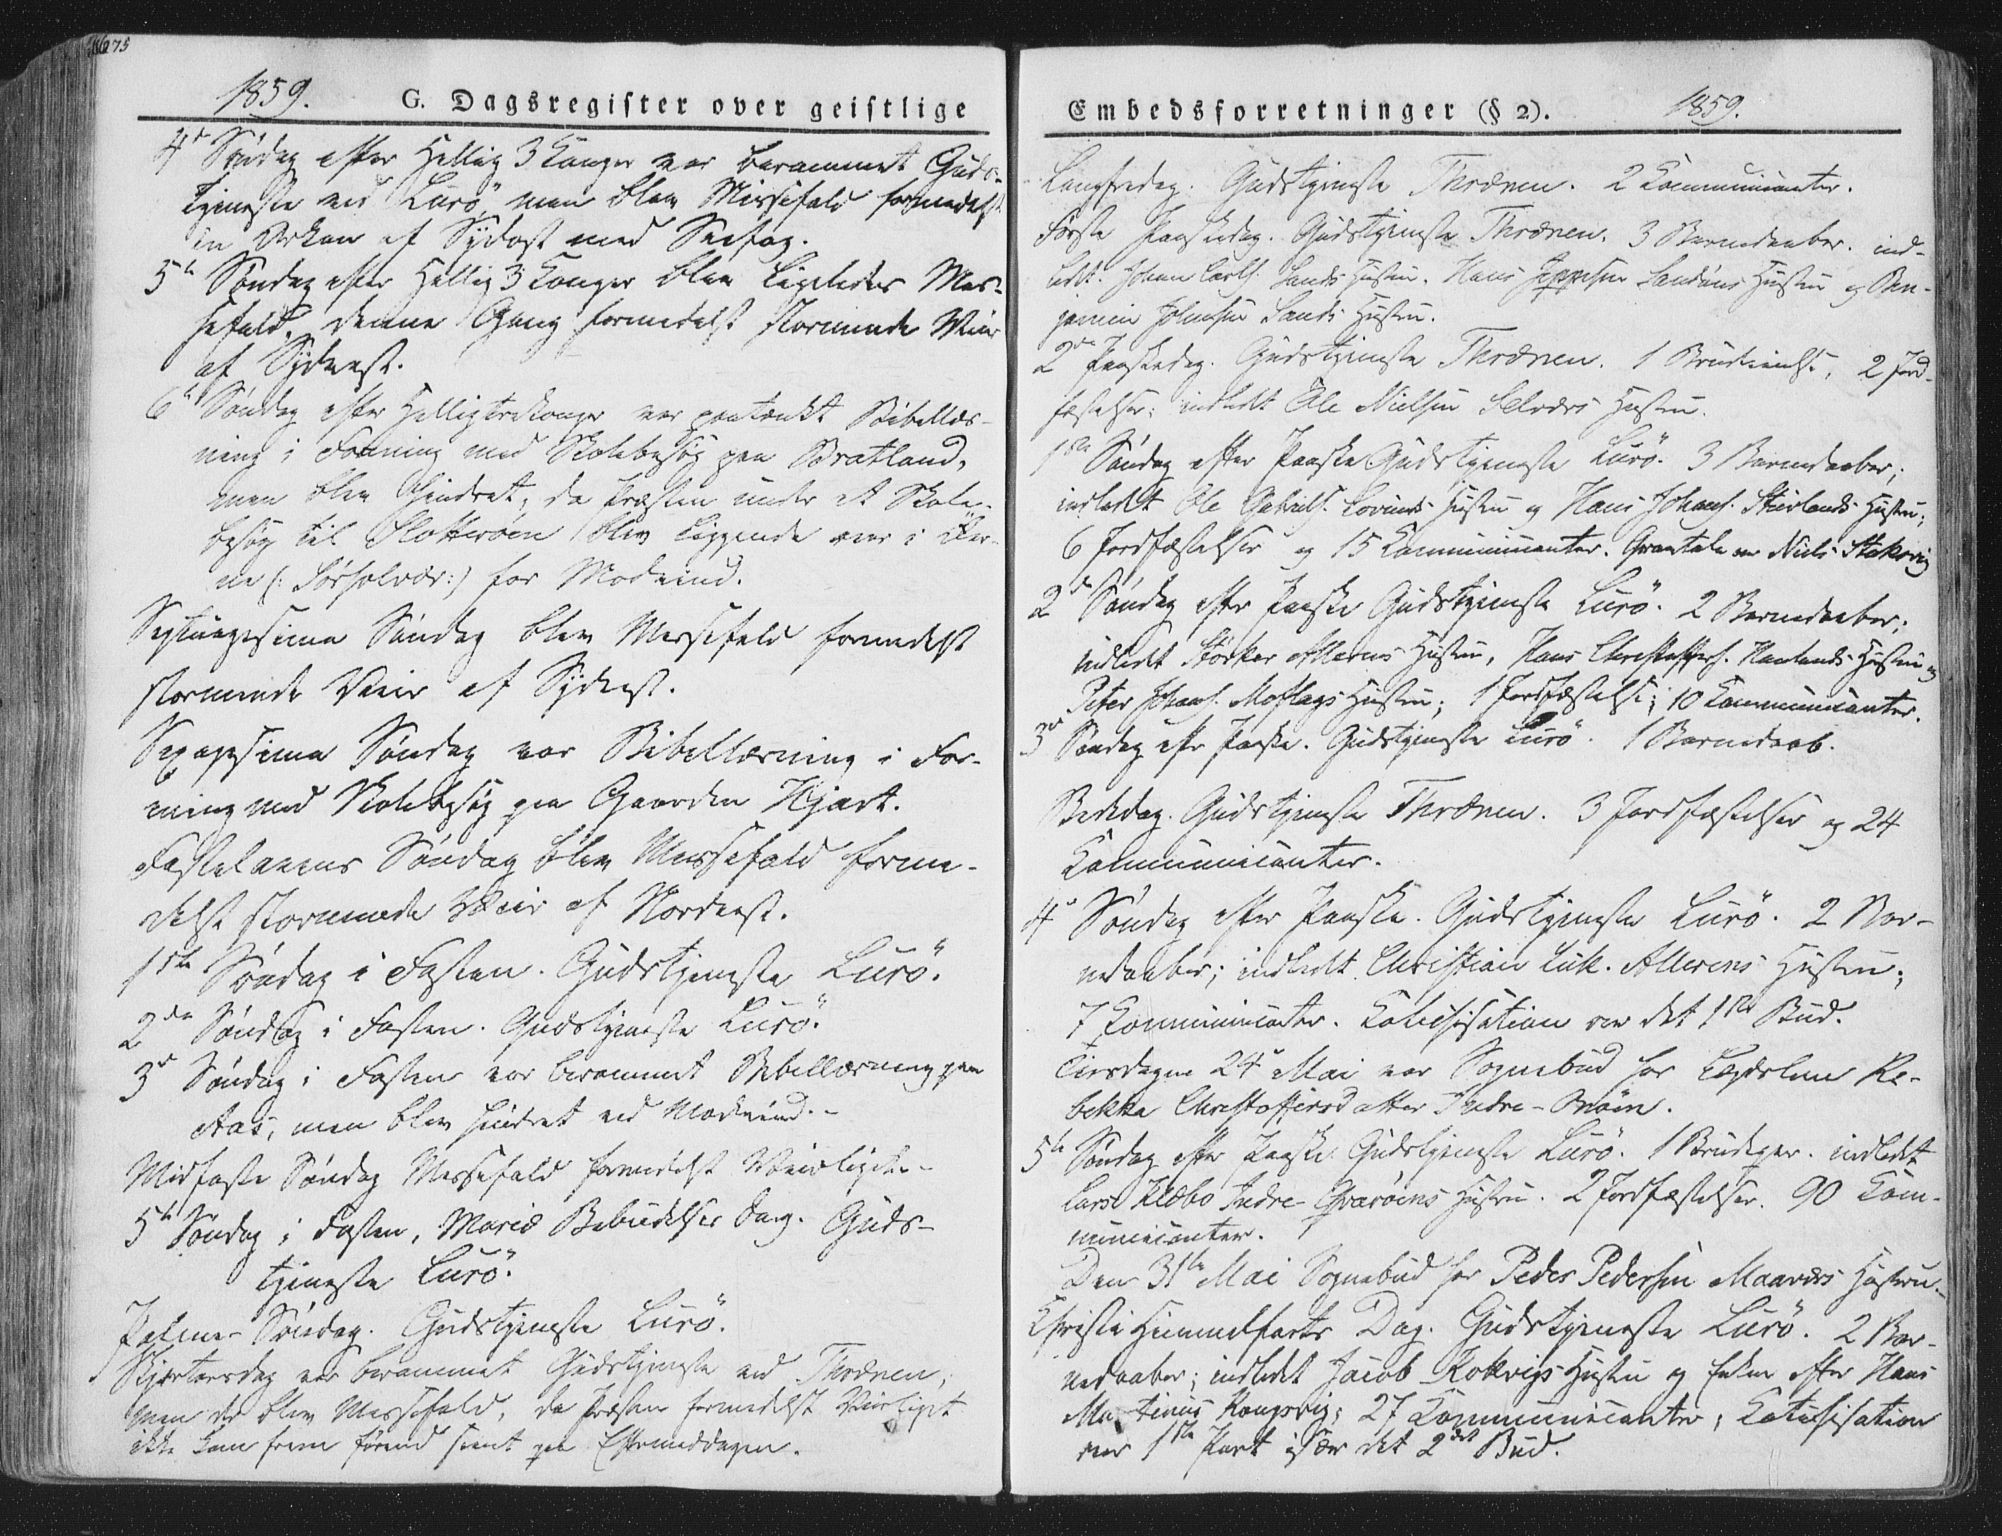 275
1859.
G. Dagsregister over geistlige
4de Søndag efter Hellig 3 Konger var berammet Guds-
tjeneste ved Lurö, men blev Messefald formedelst
en Orkan af Sydost med Snefog.
5te Søndag efter Hellig 3 Konger blev ligeledes Mes-
sefald, denne Gang formedelst stormende Veir
af Sydvest.
6te Søndag efter Helligtrekonger var paatænkt Bibellæs-
ning i Forening med Skolebesøg paa Bratland,
men blev hindret, da Præsten under et Skole-
besøg til Slotterøen blev liggende veir i
(: Sørsolvær:) for Modvind.
Septuagesima Søndag blev Messefald formedelst
stormende Veir af Sydvest.
Sexagesima Søndag var Bibellæsning i For-
ening med Skolebesøg paa Gaarden Hjart.
Fastelavens Søndag blev Messefald forme-
delst stormende Veir af Nordvest.
1ste Søndag i Fasten. Gudstjeneste Lurö.
2den Søndag i Fasten. Gudstjeneste Lurö.
3de Søndag i Fasten var berammet Bibellæsning paa
Aas, men blev hindret ved Modvind.-
Midfaste Søndag Messefald formedelst Veirliget.-
5te Søndag i Fasten, Mariæ Bebudelses Dag. Guds-
tjeneste Lurö.
Palme-Søndag. Gudstjeneste Lurö.
Skjærtorsdag var berammet Gudstjeneste ved Thrænen,
men der blev Messefald, da Præsten formedelst Veirliget
ikke kom frem førend sent paa Eftermiddagen.
Embedsforretninger (§ 2).
1859.
Langfredag. Gudstjeneste Thrænen. 2 Communicanter.
Første Paaskedag. Gudstjeneste Thrænen. 3 Barnedaaber. ind-
ledt. Johan Carls. Sands Hustru. Hans Jeppesen Sandøens Hustru og Ben-
jamin Johnsen Sands Hustru.
2den Paaskedag. Gudstjeneste Thrænen. 1 Brudvielse, 2 Jord-
fæstelser; indledt Ole Nielsen Selværs Hustru.
1ste Søndag efter Paaske Gudstjeneste Lurö. 3 Barnedaaber;
indledt Ole Gabriels. Lovunds Hustru og Hans Johans. Stuvlands Hustru;
6 Jordfæstelser og 15 Communicanter. Gravtale over Niels Stokvig
2den Søndag efter Paaske Gudstjeneste Lurö. 2 Barnedaaber;
indledt Størker Alderens Hustru, Hans Christoffers. Haalands Hustru og
Peter Johans. Moflags Hustru; 1 Jordfæstelse; 10 Communicanter.
3de Søndag efter Paaske. Gudstjeneste Lurö. 1 Barnedaab.
Bededag. Gudstjeneste Thrænen. 3 Jordfæstelser og 24
Communicanter.
4de Søndag efter Paaske. Gudstjeneste Lurö. 2 Bar-
nedaaber; indledt Christian Luk. Alderens Hustru;
7 Communicanter. Catechisation over det 1ste Bud.
Tirsdagen 24de Mai var Sognebud for Lægdslem Re-
bekka Christoffersdatter Indre-
5te Søndag efter Paaske Gudstjeneste Lurö. 1 Brudepar. indledet
Lars Klæbo Indre-Qvarøens Hustru. 2 Jordfæstelser. 90 Com-
municanter.
Den 31te Mai Sognebud for Peder Pedersen Maaværs Hustru.
Christi Himmelfarts Dag. Gudstjeneste Lurö. 2 Bar-
nedaaber; indledet Jacob Kokvigs Hustru og Enken efter Hans
Martinus Kongsvig; 27 Communicanter; Catechisation
over 1ste Part især det 2det Bud.